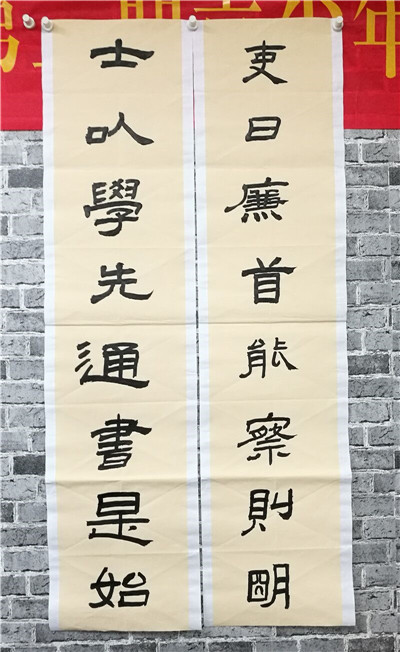 吏曰廉首能察則明
士以學先通書是始